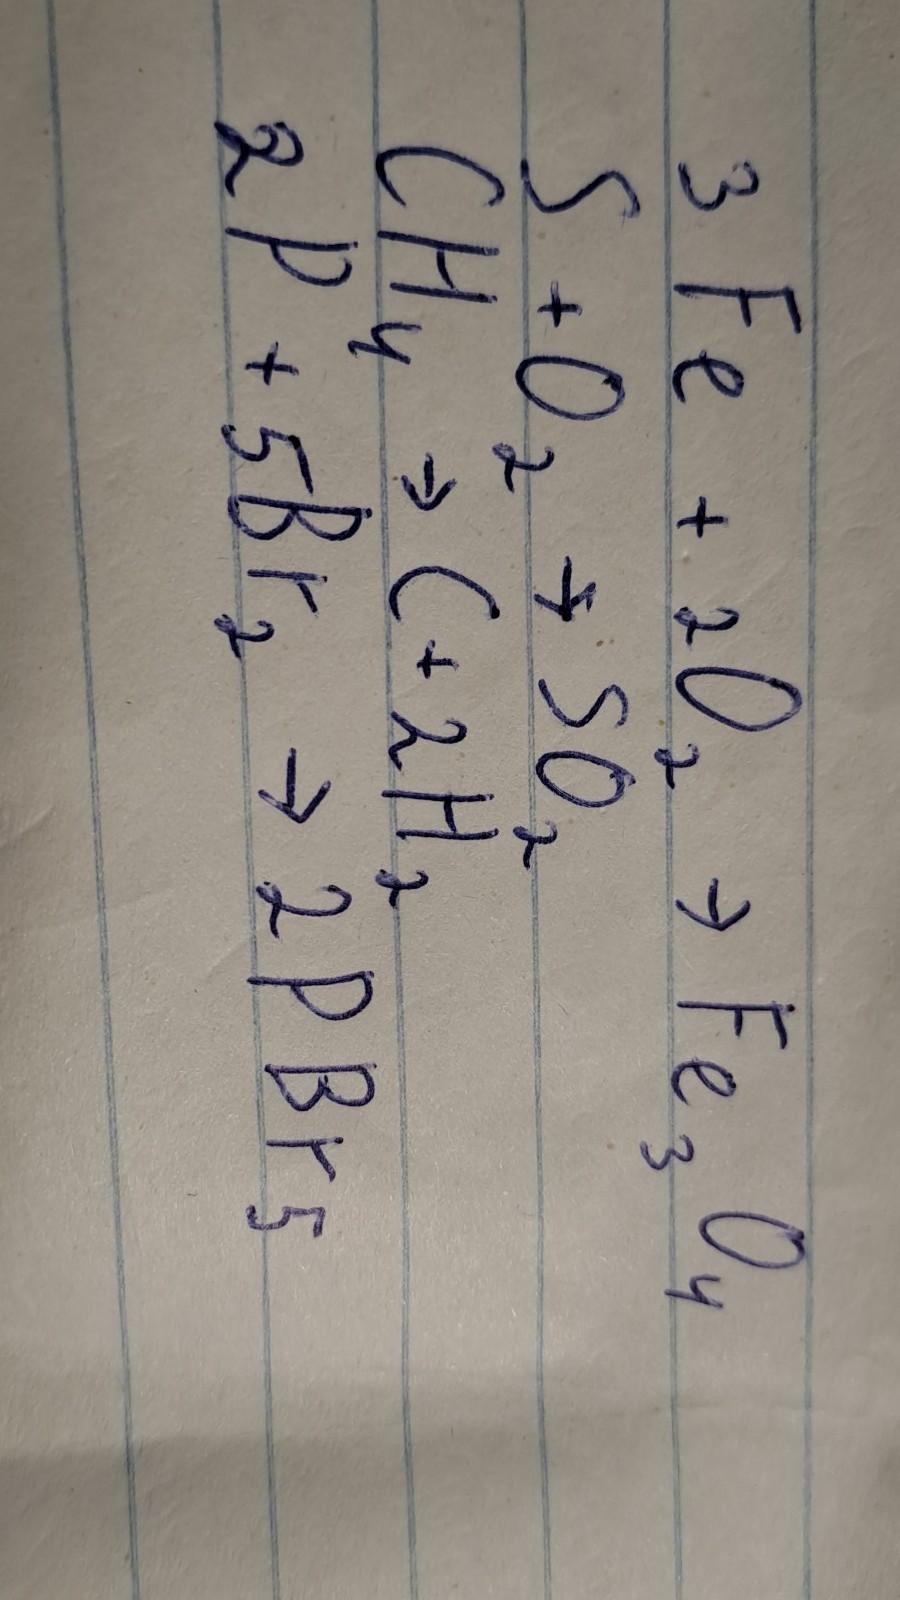 3 Fe + 2O₂ → Fe₃O₄
S + O₂ → SO₂
CH₄ → C + 2H₂
2P + 5Br₂ → 2PBr₅